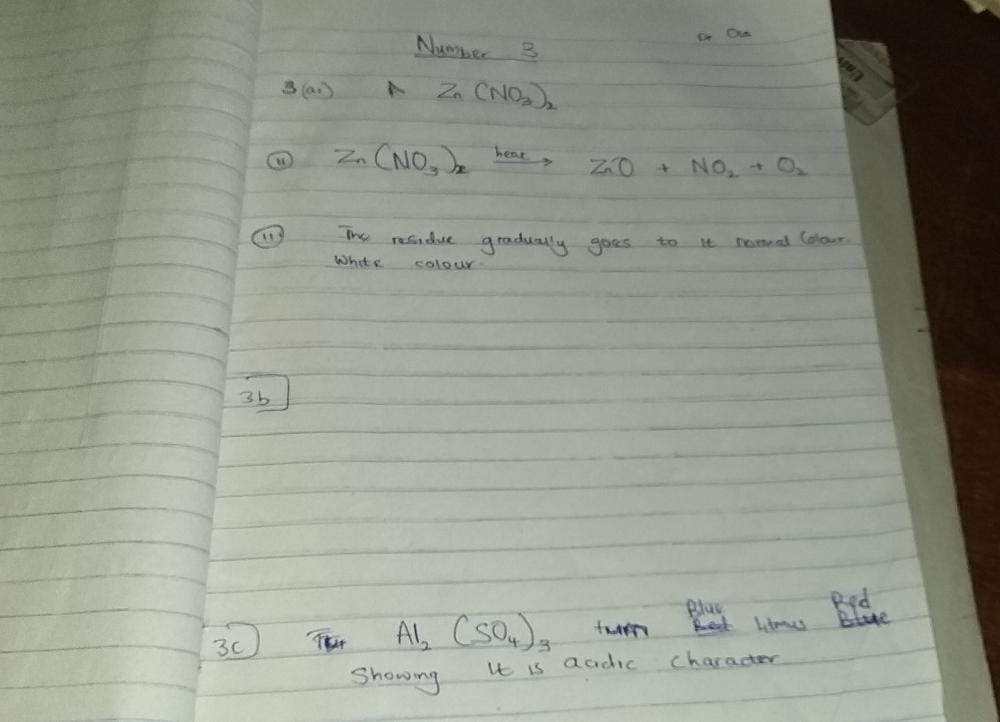 Number 3
3(a.) A Zn(NO₃)₂
(ii) Zn(NO₃)₂ heat → ZnO + NO₂ + O₂
(iii) The residue gradually goes to it normal Colour.
White colour.
3b
3c) Al₂(SO₄)₃ turn Blue litmus Red
Showing It is acidic character